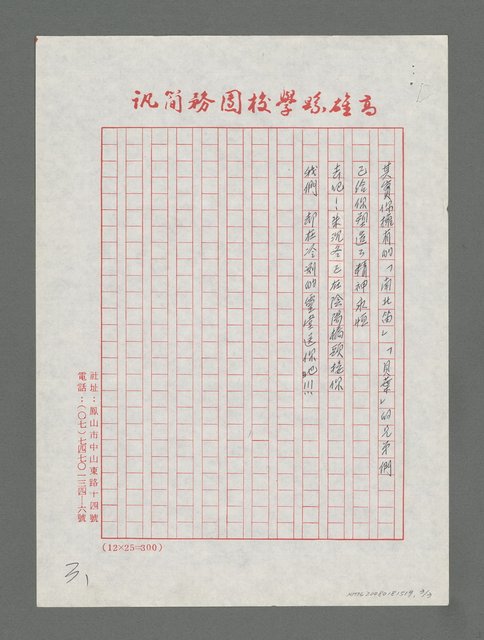 高雄縣學校園務簡訊
其實你擁有的「南北笛」「貝葉」的兄弟們
已給你塑造了精神永恒
去吧！朱沉冬已在陰陽橋頭接你
我們 都在冷冽的靈堂送你吧！！！
社址：鳳山市中山東路十四號
電話：(〇七)七四七〇一三四—六號
(12×25=300)
3、